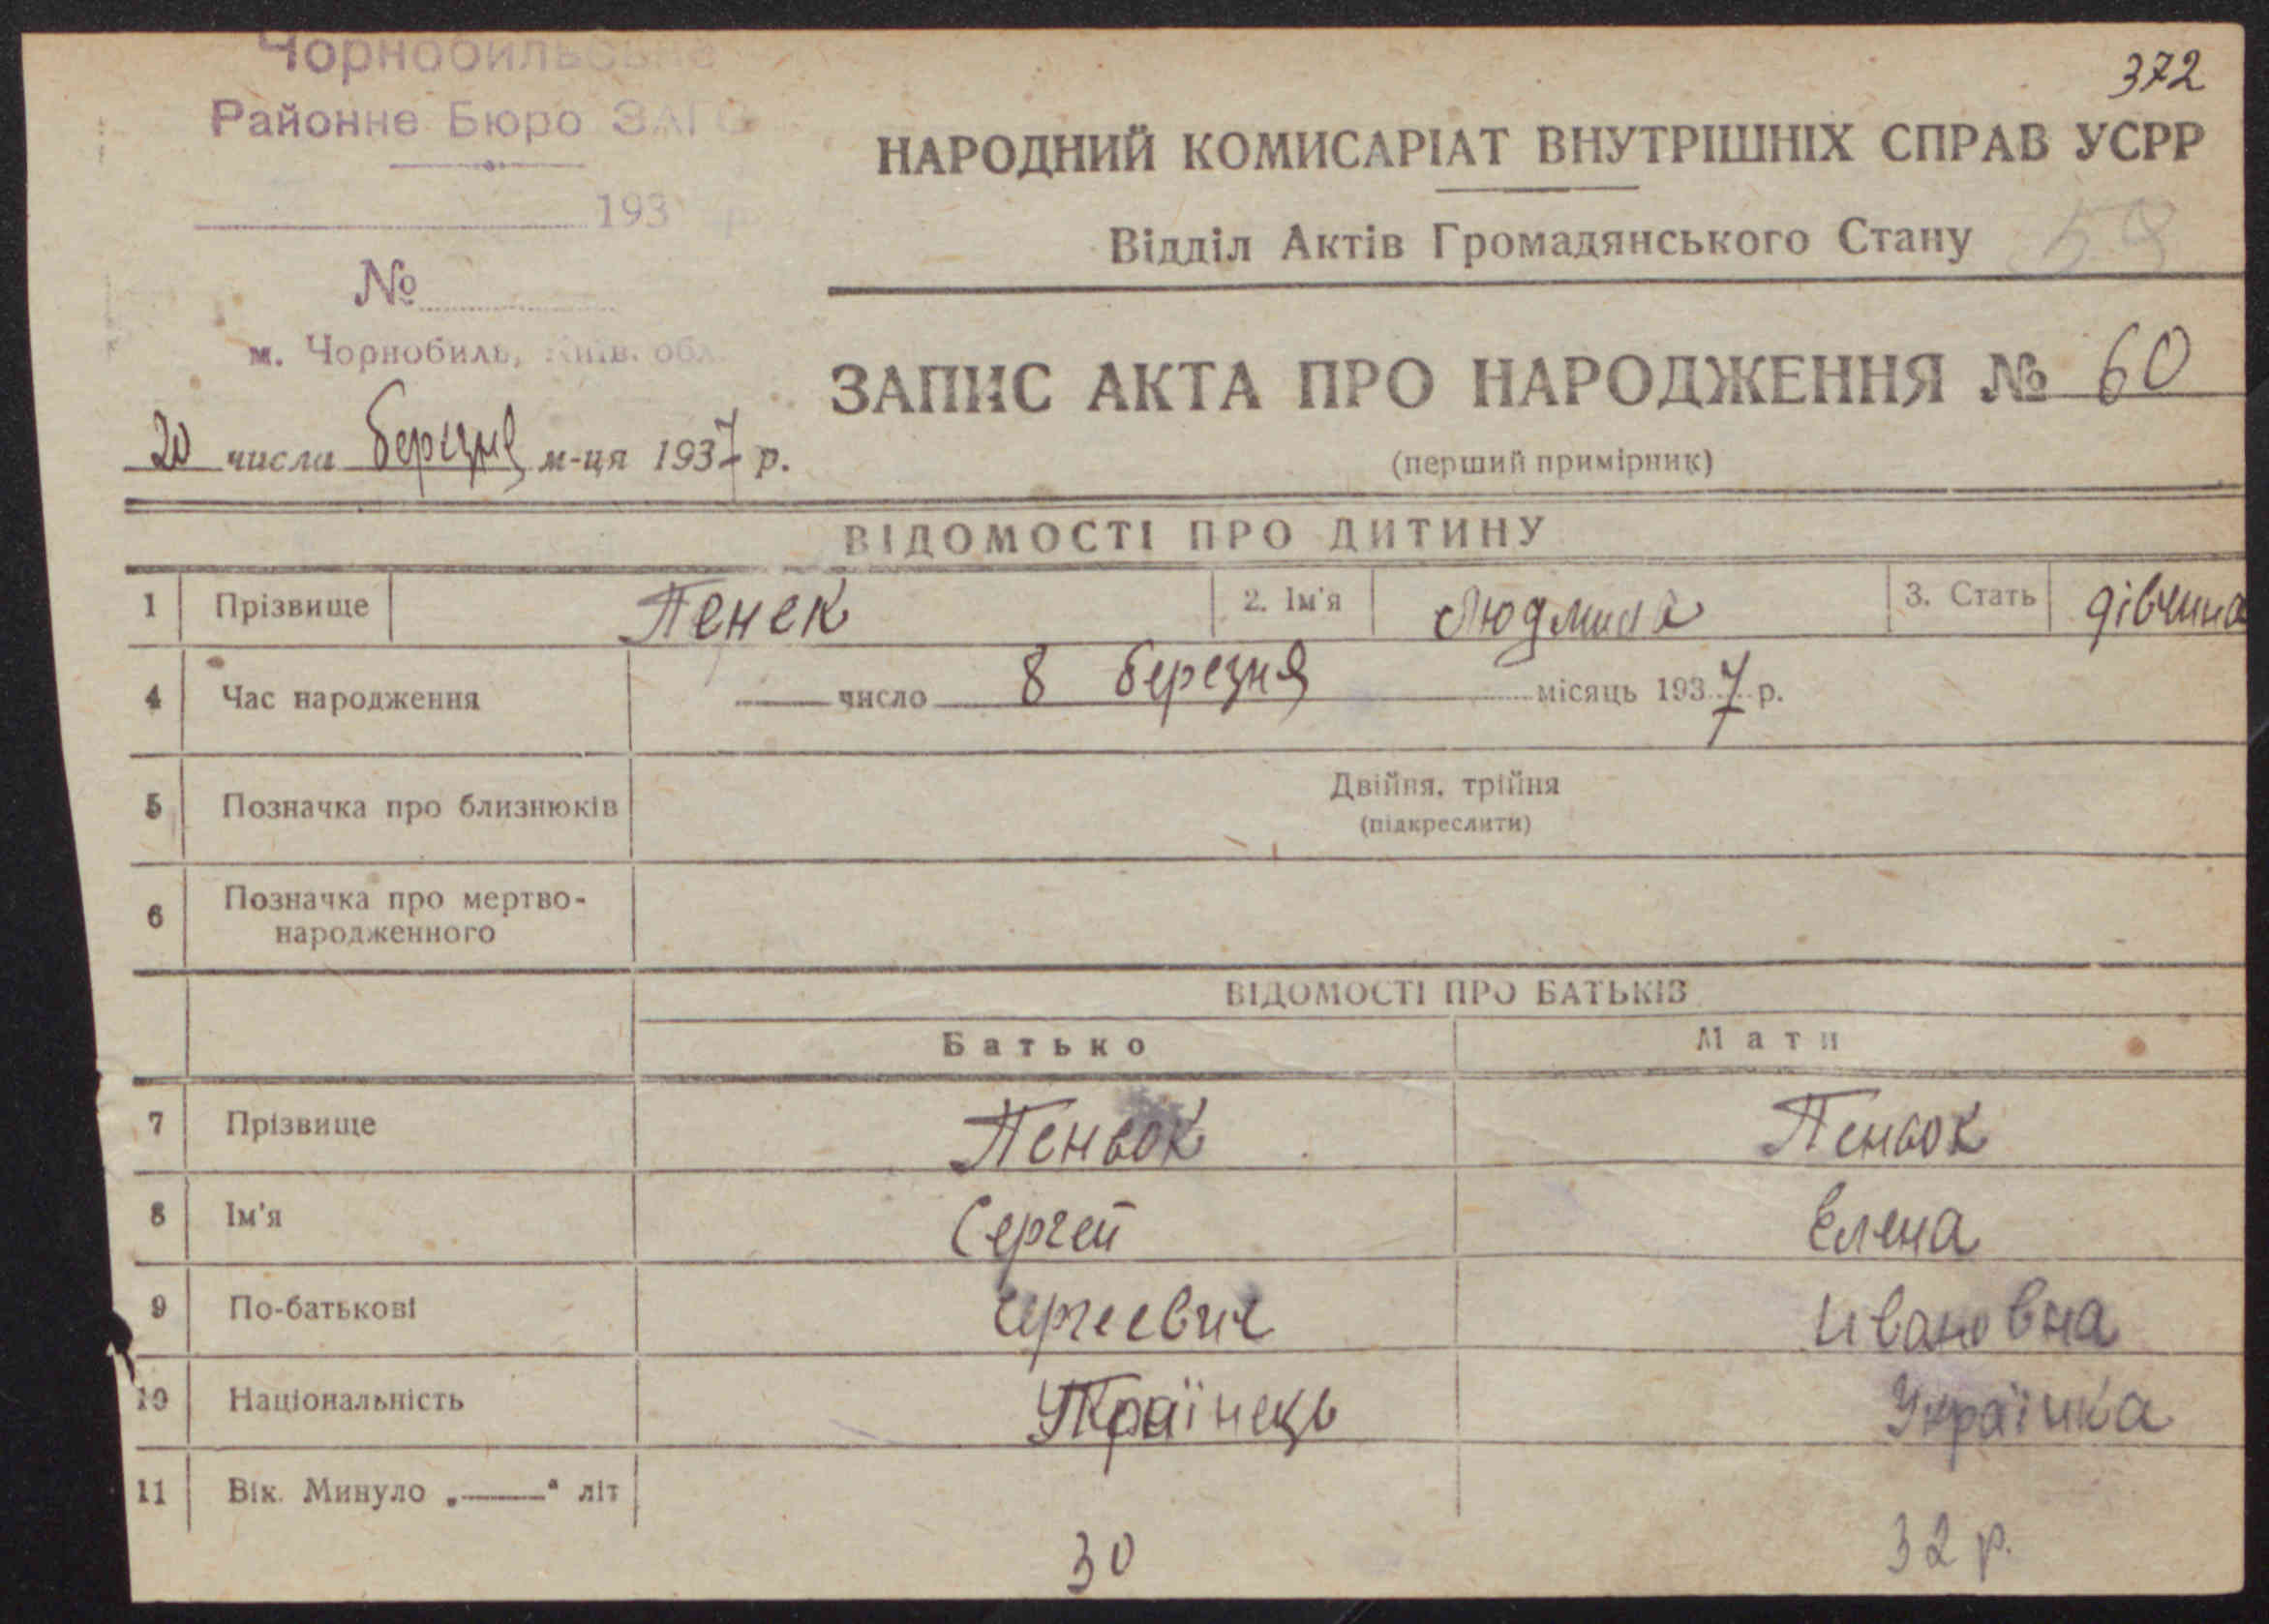 Чорнобильське
Районне Бюро ЗАГС
193 р
№
м. Чорнобиль, Київ. обл.
20 числа березня м-ця 1937 р.
372
НАРОДНИЙ КОМИСАРІАТ ВНУТРІШНІХ СПРАВ УСРР
Відділ Актів Громадянського Стану
59
ЗАПИС АКТА ПРО НАРОДЖЕННЯ № 60
(перший примірник)
ВІДОМОСТІ ПРО ДИТИНУ
1 Прізвище Пенек 2. Ім'я Людмила 3. Стать дівчина
4 Час народження число 8 березня місяць 1937 р.
5 Позначка про близнюків Двійня, трійня
(підкреслити)
6 Позначка про мертво-
народженного
ВІДОМОСТІ ПРО БАТЬКІВ
Батько Мати
7 Прізвище Пеньок Пеньок
8 Ім'я Сергей Елена
9 По-батькові Сергеевич Ивановна
10 Національність Українець Українка
11 Вік. Минуло „—“ літ
30 32 р.